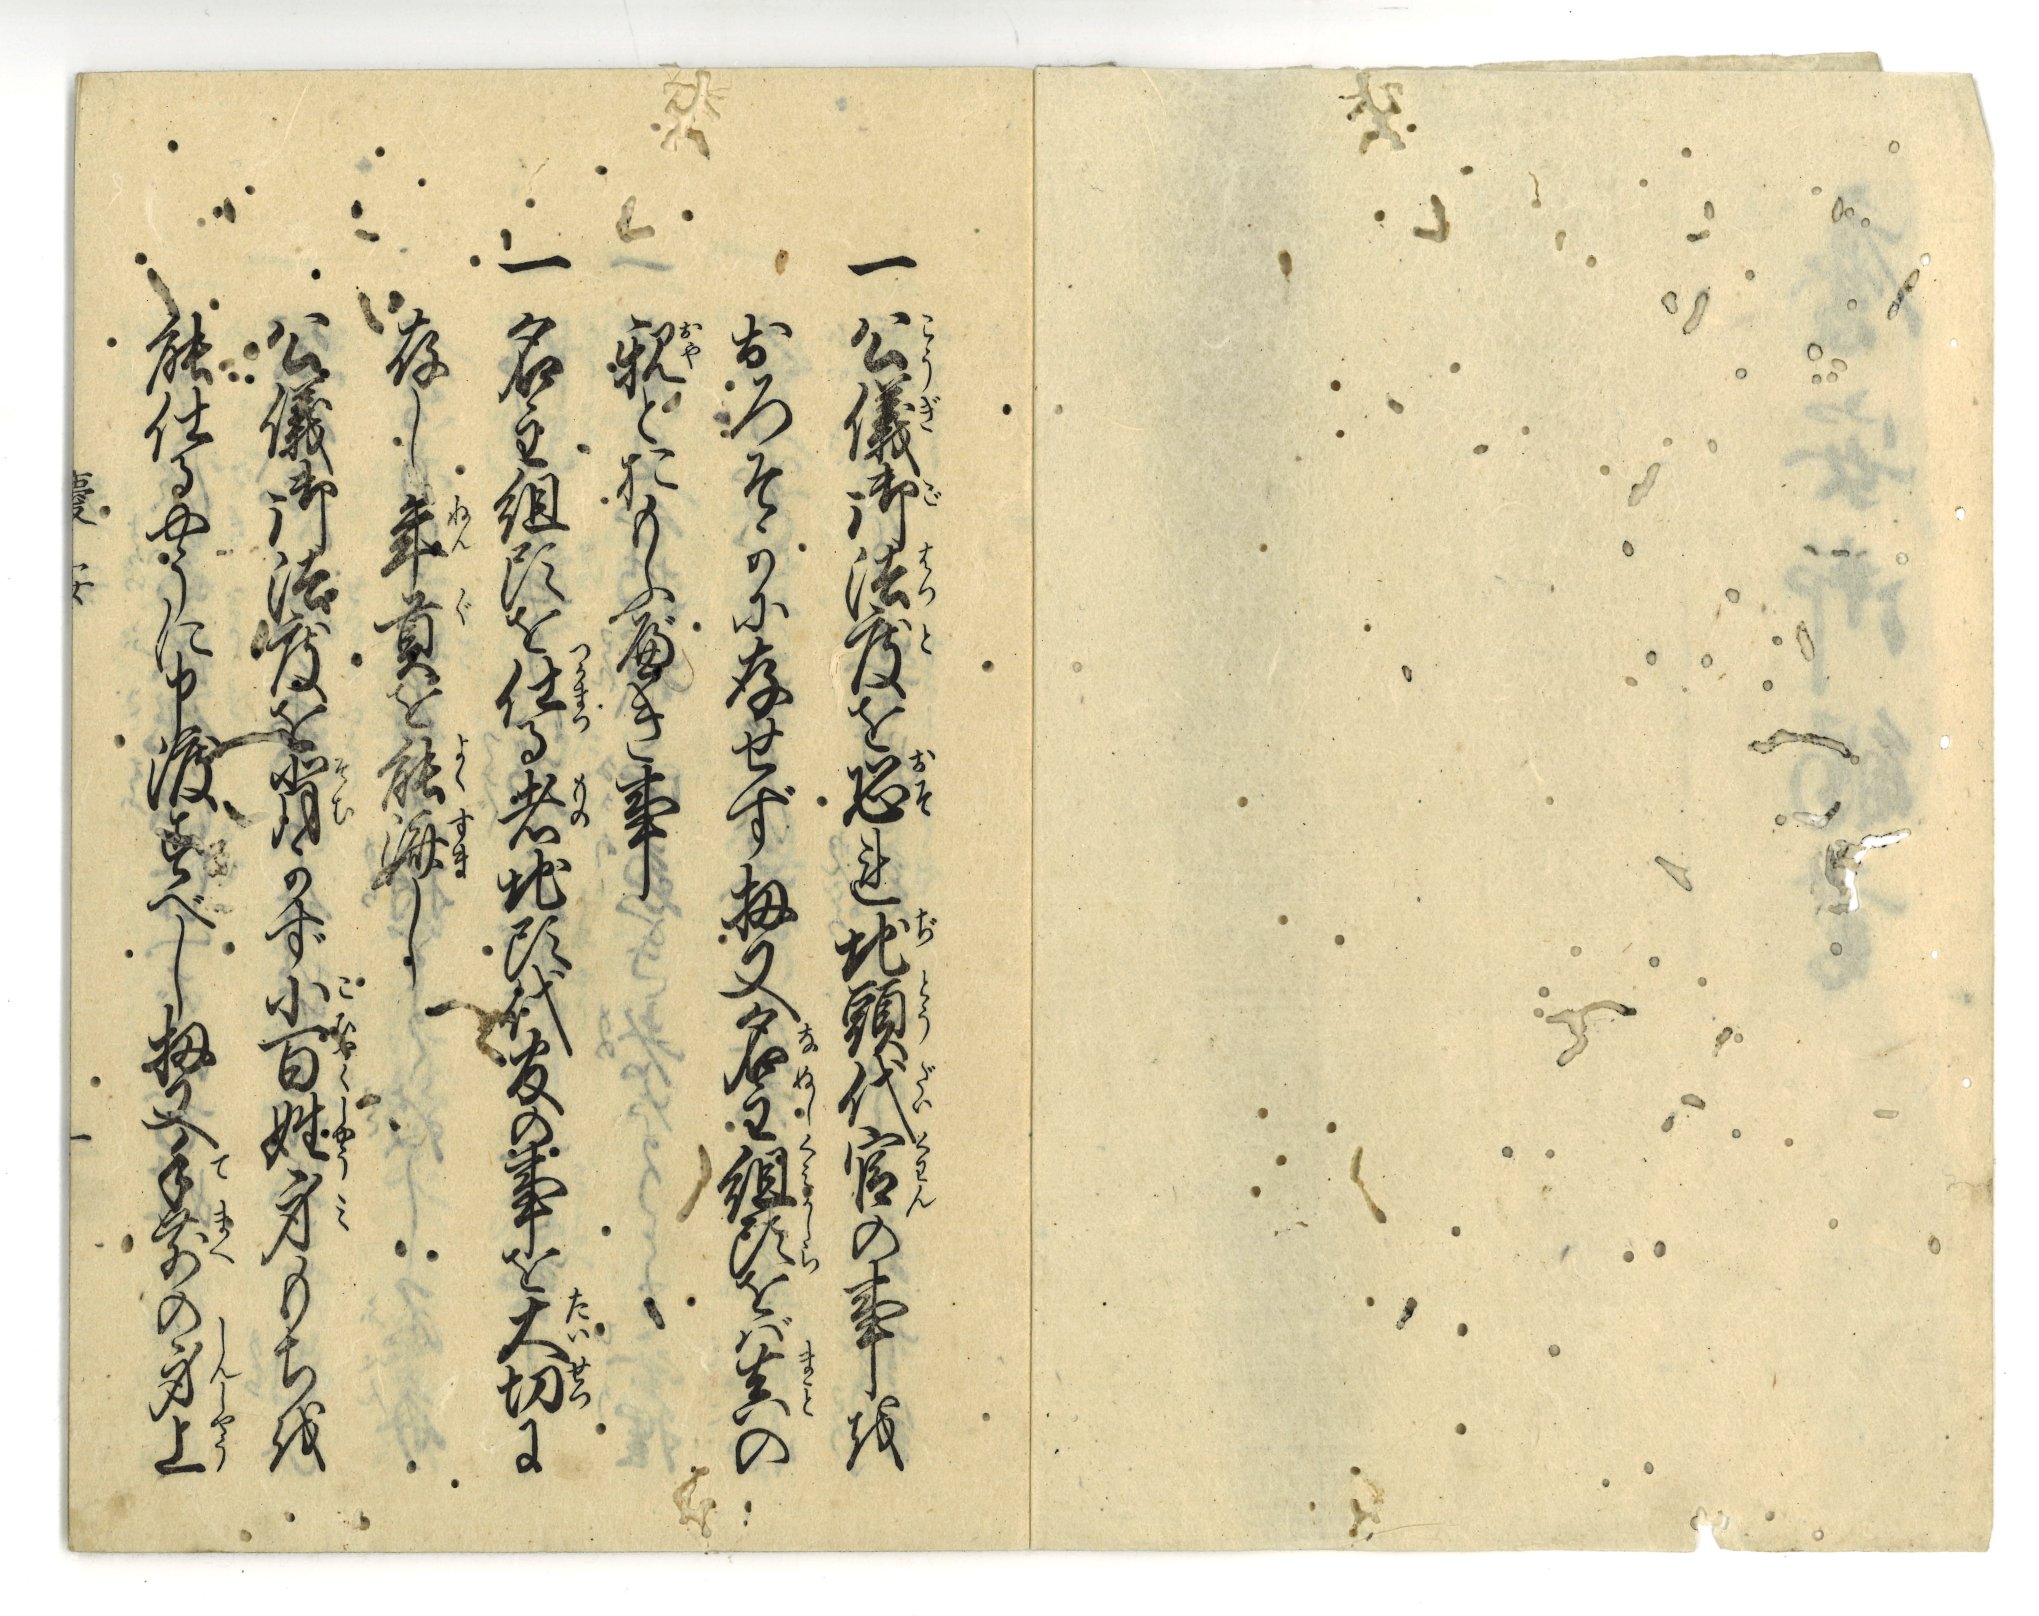 一 公儀御法度を恐れ地頭代官の事を
おろそかに存せず扨又名主組頭をば真の
親とおもふべき事
一 名主組頭を仕る者地頭代官の事を大切に
存し年貢を能済し
公儀御法度を背かず小百姓身もちを
能仕るやうに申渡すべし扨又手前の身上
慶安
一